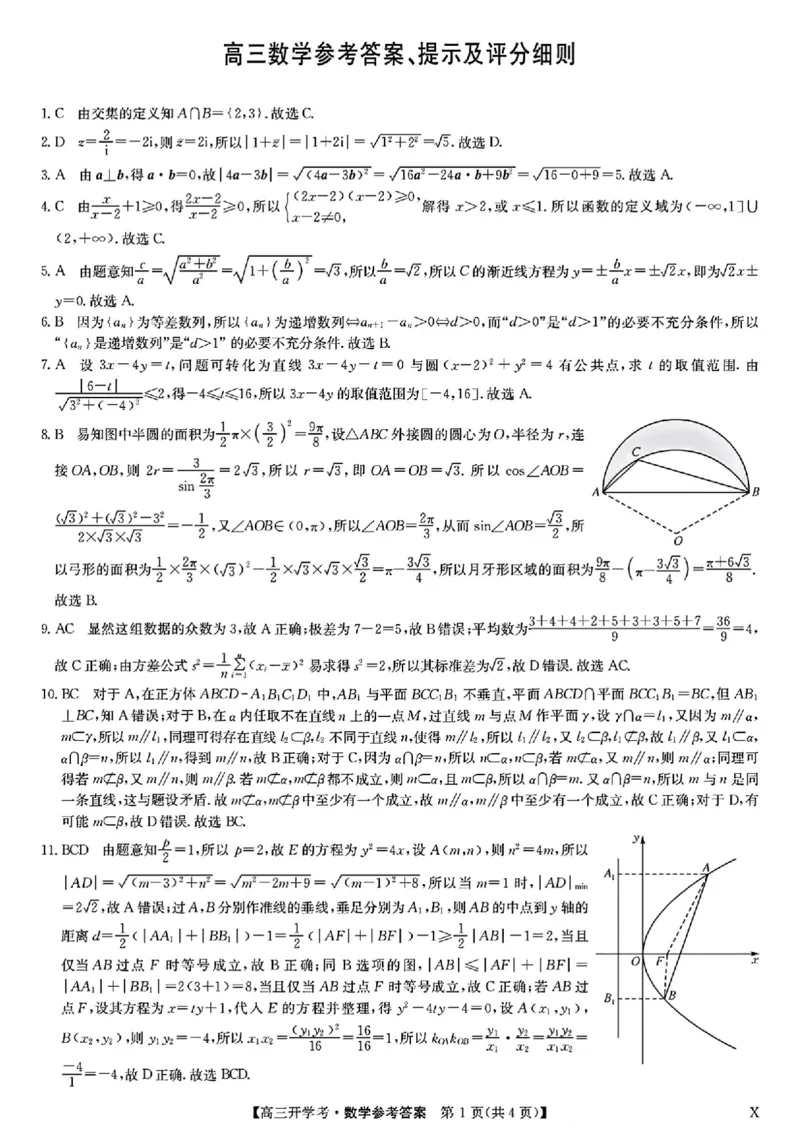 高三数学参考答案、提示及评分细则
1. C 由交集的定义知 A∩B={2,3}.故选C.
2. D z=2/i=-2i,则z̄=2i,所以|1+z̄|=|1+2i|=√(1²+2²)=√5.故选D.
3. A 由a⊥b,得a·b=0,故|4a-3b|=√((4a-3b)²)=√(16a²-24a·b+9b²)=√(16-0+9)=5.故选A.
4. C 由x/(x-2)+1≥0,得(2x-2)/(x-2)≥0,所以{(2x-2)(x-2)≥0, x-2≠0, 解得x>2,或x≤1.所以函数的定义域为(-∞,1]∪
(2,+∞).故选C.
5. A 由题意知c/a=√((a²+b²)/a²)=√(1+(b/a)²)=√3,所以b/a=√2,所以C的渐近线方程为y=±(b/a)x=±√2x,即为√2x±
y=0.故选A.
6. B 因为{aₙ}为等差数列,所以{aₙ}为递增数列⇔aₙ₊₁-aₙ>0⇔d>0,而“d>0”是“d>1”的必要不充分条件,所以
“{aₙ}是递增数列”是“d>1”的必要不充分条件.故选B.
7. A 设3x-4y=t,问题可转化为直线3x-4y-t=0与圆(x-2)²+y²=4有公共点,求t的取值范围.由
|6-t|/√(3²+(-4)²)≤2,得-4≤t≤16,所以3x-4y的取值范围为[-4,16].故选A.
8. B 易知图中半圆的面积为1/2π×(3/2)²=9π/8,设△ABC外接圆的圆心为O,半径为r,连
接OA,OB,则2r=3/(sin 2π/3)=2√3,所以r=√3,即OA=OB=√3.所以cos∠AOB=
((√3)²+(√3)²-3²)/(2×√3×√3)=-1/2,又∠AOB∈(0,π),所以∠AOB=2π/3,从而sin∠AOB=√3/2,所
以弓形的面积为1/2×2π/3×(√3)²-1/2×√3×√3×√3/2=π-3√3/4,所以月牙形区域的面积为9π/8-(π-3√3/4)=(π+6√3)/8.
故选B.
C
A
B
O
9. AC 显然这组数据的众数为3,故A正确;极差为7-2=5,故B错误;平均数为(3+4+4+2+5+3+3+5+7)/9=36/9=4,
故C正确;由方差公式s²=1/n∑ⁿᵢ₌₁(xᵢ-x̄)²易求得s²=2,所以其标准差为√2,故D错误.故选AC.
10. BC 对于A,在正方体ABCD-A₁B₁C₁D₁中,AB₁与平面BCC₁B₁不垂直,平面ABCD∩平面BCC₁B₁=BC,但AB₁
⊥BC,知A错误;对于B,在α内任取不在直线n上的一点M,过直线m与点M作平面γ,设γ∩α=l₁,又因为m∥α,
m⊂γ,所以m∥l₁,同理可得存在直线l₂⊂β,l₂不同于直线n,使得m∥l₂,所以l₁∥l₂,又l₂⊂β,l₁⊄β,故l₁∥β,又l₁⊂α,
α∩β=n,所以l₁∥n,得到m∥n,故B正确;对于C,因为α∩β=n,所以n⊂α,n⊂β,若m⊄α,又m∥n,则m∥α;同理可
得若m⊄β,又m∥n,则m∥β.若m⊄α,m⊄β都不成立,则m⊂α,且m⊂β,所以α∩β=m.又α∩β=n,所以m与n是同
一条直线,这与题设矛盾.故m⊄α,m⊄β中至少有一个成立,故m∥α,m∥β中至少有一个成立,故C正确;对于D,有
可能m⊂β,故D错误.故选BC.
11. BCD 由题意知p/2=1,所以p=2,故E的方程为y²=4x,设A(m,n),则n²=4m,所以
|AD|=√((m-3)²+n²)=√(m²-2m+9)=√((m-1)²+8),所以当m=1时,|AD|min
=2√2,故A错误;过A,B分别作准线的垂线,垂足分别为A₁,B₁,则AB的中点到y轴的
距离d=1/2(|AA₁|+|BB₁|)-1=1/2(|AF|+|BF|)-1≥1/2|AB|-1=2,当且
仅当AB过点F时等号成立,故B正确;同B选项的图,|AB|≤|AF|+|BF|=
|AA₁|+|BB₁|=2(3+1)=8,当且仅当AB过点F时等号成立,故C正确;若AB过
点F,设其方程为x=ty+1,代入E的方程并整理,得y²-4ty-4=0,设A(x₁,y₁),
B(x₂,y₂),则y₁y₂=-4,所以x₁x₂=(y₁y₂)²/16=16/16=1,所以kOAkOB=y₁/x₁·y₂/x₂=y₁y₂/x₁x₂=
-4/1=-4,故D正确.故选BCD.
y
A₁
A
O
F
x
B₁
B
【高三开学考·数学参考答案 第1页(共4页)】
X